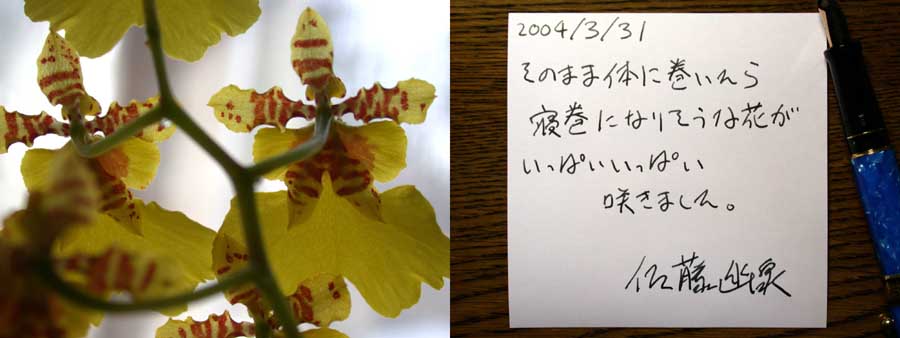 2004/3/31
そのまま体に巻いたら
寝巻になりそうな花が
いっぱいいっぱい
咲きました。
佐藤